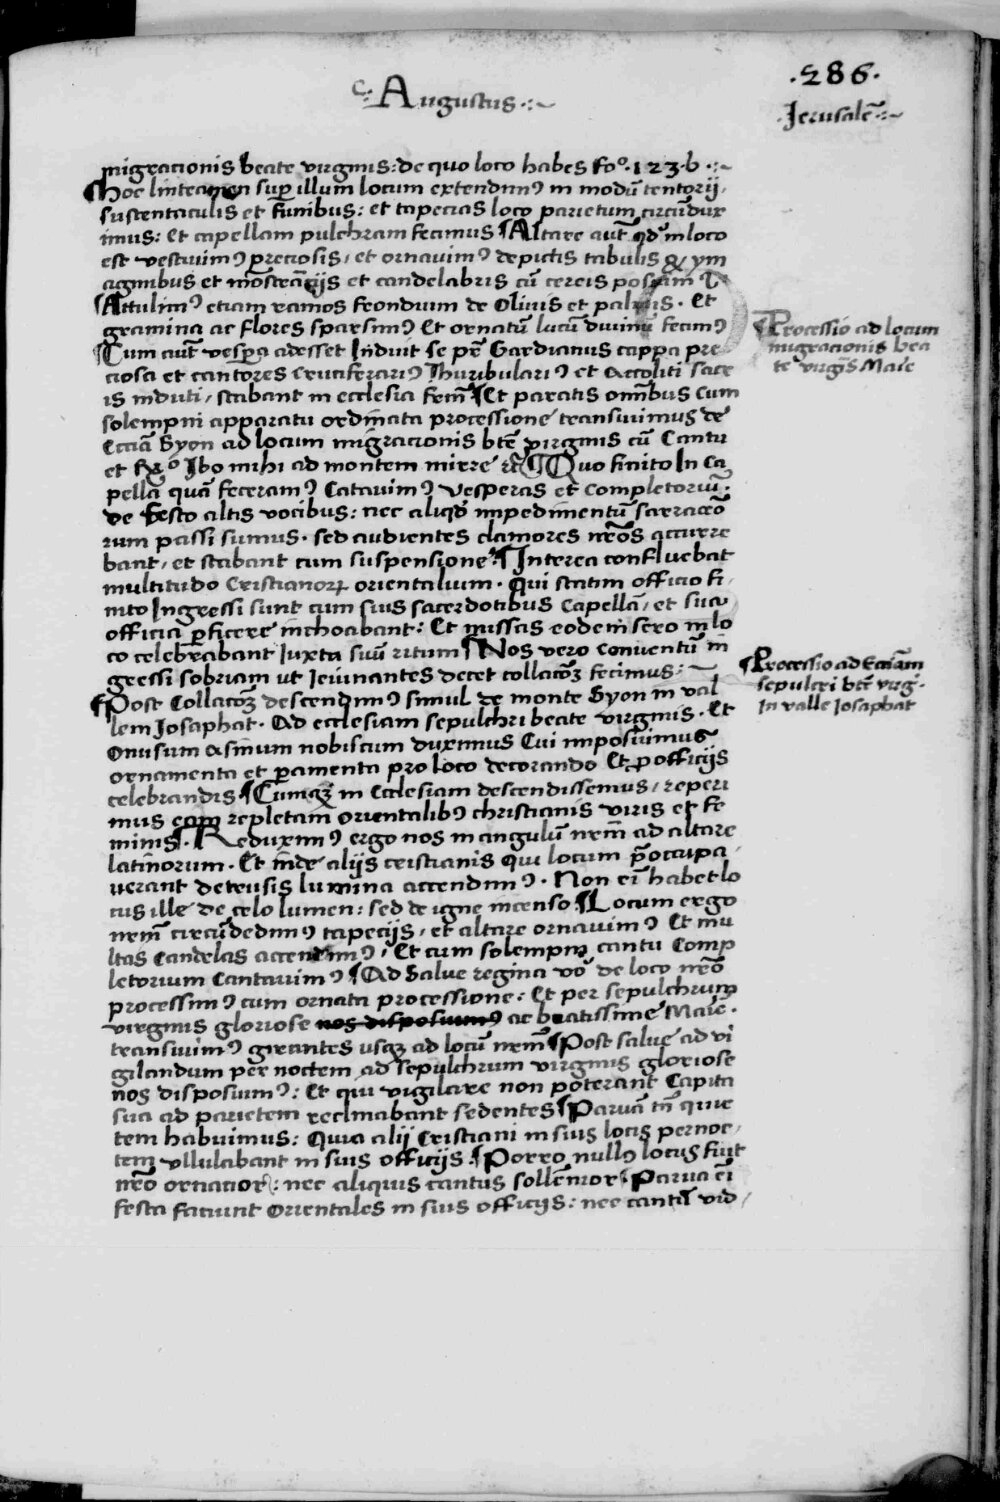 .286.
C. Augustus.
Jerusalē
migracionis beate virginis: de quo loco habes fo°. 123. b
¶ hoc linteamen suꝑ illum locum extendimꝰ in modū tentorij
sustentaculis et funibus: et tapecias loco parietum circūdux
imus: Et capellam pulchram fecimus ¶ Altare aut̄ qd' in loco
est vestiuimꝰ preciosis, et ornauimꝰ depictis tabulis & ym
aginibus et mōstrācijs et candelabris cū cereis
¶ Attulimꝰ etiam ramos frondium de Oliuis et palmis. Et
gramina ac flores sparsimꝰ Et ornatū lucū diuinū fecimꝰ
¶ Cum aut̄ vespera adesset Induit se pr̄ Gardianus cappa pre
ciosa et cantores Cruciferariꝰ Thuribulariꝰ et Accoliti sacr
is induti, stabant in ecclesia ¶ Et paratis om̄ibus cum
solempni apparatu ordinata processione transiuimus de
Ecciā Syon ad locum migracionis btē virginis cū Cantu
et Ibo mihi ad montem mirre ¶ Quo finito In ca
pellā quā feceramꝰ Catauimꝰ vesperas et completoriū.
de festo altis vocibus: nec aliqd' impedimentū sarraceno
rum passi sumus. sed audientes clamores nr̄os accurre
bant, et stabant cum suspensione. ¶ Interea confluebat
multitudo Cristianoꝝ orientalium. Qui statim officio fi,
nito Ingressi sunt cum suis sacerdotibus Capellā, et sua
officia ꝑficere inchoabant: Et missas eodem sero in lo
co celebrabant Iuxta suū ritum ¶ Nos vero Conuentū in
gressi sobriam ut Ieiunantes decet collacōꝫ fecimus:
¶ Post Collacōꝫ descendimꝰ simul de monte Syon in val
lem Josaphat. Ad ecclesiam sepulchri beate virginis. Et
Onustum asinum nobiscum duximus Cui imposuimus
ornamenta et ꝑamenta pro loco decorando Et ꝓ officijs
celebrandis. ¶ Cumqꝫ in Ecclesiam descendissemus, reperi
mus eam repletam orientalibꝰ christianis viris et fe
minis. ¶ Reduximꝰ ergo nos in angulū nrm̄ ad altare
latinorum. Et inde alijs cristianis qui locum p̄occupa,
uerant detrusis lumina accendimꝰ. Non ei̅ habet lo
cus ille de celo lumen: sed de igne incenso. ¶ Locum ergo
nrm̄ circūdedimꝰ tapecijs, et altare ornauimꝰ Et mu
ltas Candelas accendimꝰ, Et cum solempni cantu Comp
letorium Cantauimꝰ ¶ Ad Salue regina vō de loco nrō
processimꝰ cum ornata processione: Et per sepulchrum
virginis gloriose nos disposuimꝰ ac beatissime Marie.
transiuimꝰ girantes usqꝫ ad locū nrm̄ ¶ Post salue ad vi
gilandum per noctem ad sepulchrum virginis gloriose
nos disposuimꝰ: Et qui vigilare non poterant Capita
sua ad parietem reclinabant sedentes ¶ Paruā tn̄ quie
tem habuimus: Quia alij Cristiani in suis locis pernoc,
tem vllulabant in suis officijs. ¶ Porro nullꝰ locus fuit
nrō ornatior: nec aliquis cantus sollēnior ¶ Parua ei̅
festa faciunt Orientales in suis officijs: nec cantꝰ vid,
¶ Processio ad locum
migracionis bea
te virgīs Marie
¶ Processio ad Ecciam
sepulcri btē virg.
In valle Iosaphat